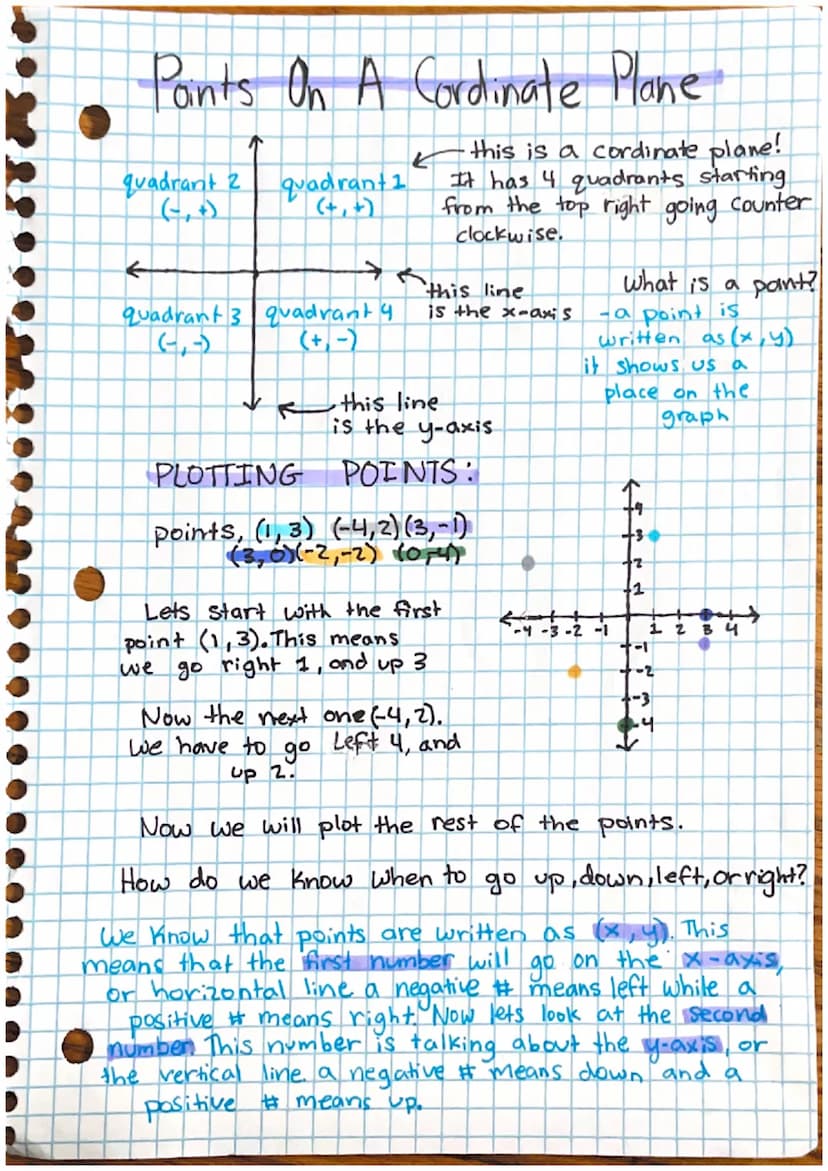 Points On A Cordinate Plane
this is a cordinate plane!
It has 4 quadrants starting
from the top right going counter
clockwise.
quadrant 2
(-, +)
quadrant 1
(+, +)
quadrant 3
(-, -)
quadrant 4
(+, -)
this line
is the x-axis
this line
is the y-axis
What is a point?
-a point is
written as (x, y)
it shows us a
place on the
graph
PLOTTING POINTS:
points, (1, 3) (-4, 2) (3, -1)
(3, 0) (-2, -2) (0, -4)
4
3
2
1
-4 -3 -2 -1 1 2 3 4
-1
-2
-3
-4
Lets start with the first
point (1, 3). This means
we go right 1, and up 3
Now the next one (-4, 2).
We have to go Left 4, and
up 2.
Now we will plot the rest of the points.
How do we know when to go up, down, left, or right?
We know that points are written as (x, y). This
means that the first number will go on the x-axis,
or horizontal line a negative # means left while a
positive # means right. Now lets look at the second
number. This number is talking about the y-axis, or
the vertical line. a negative # means down and a
positive # means up.